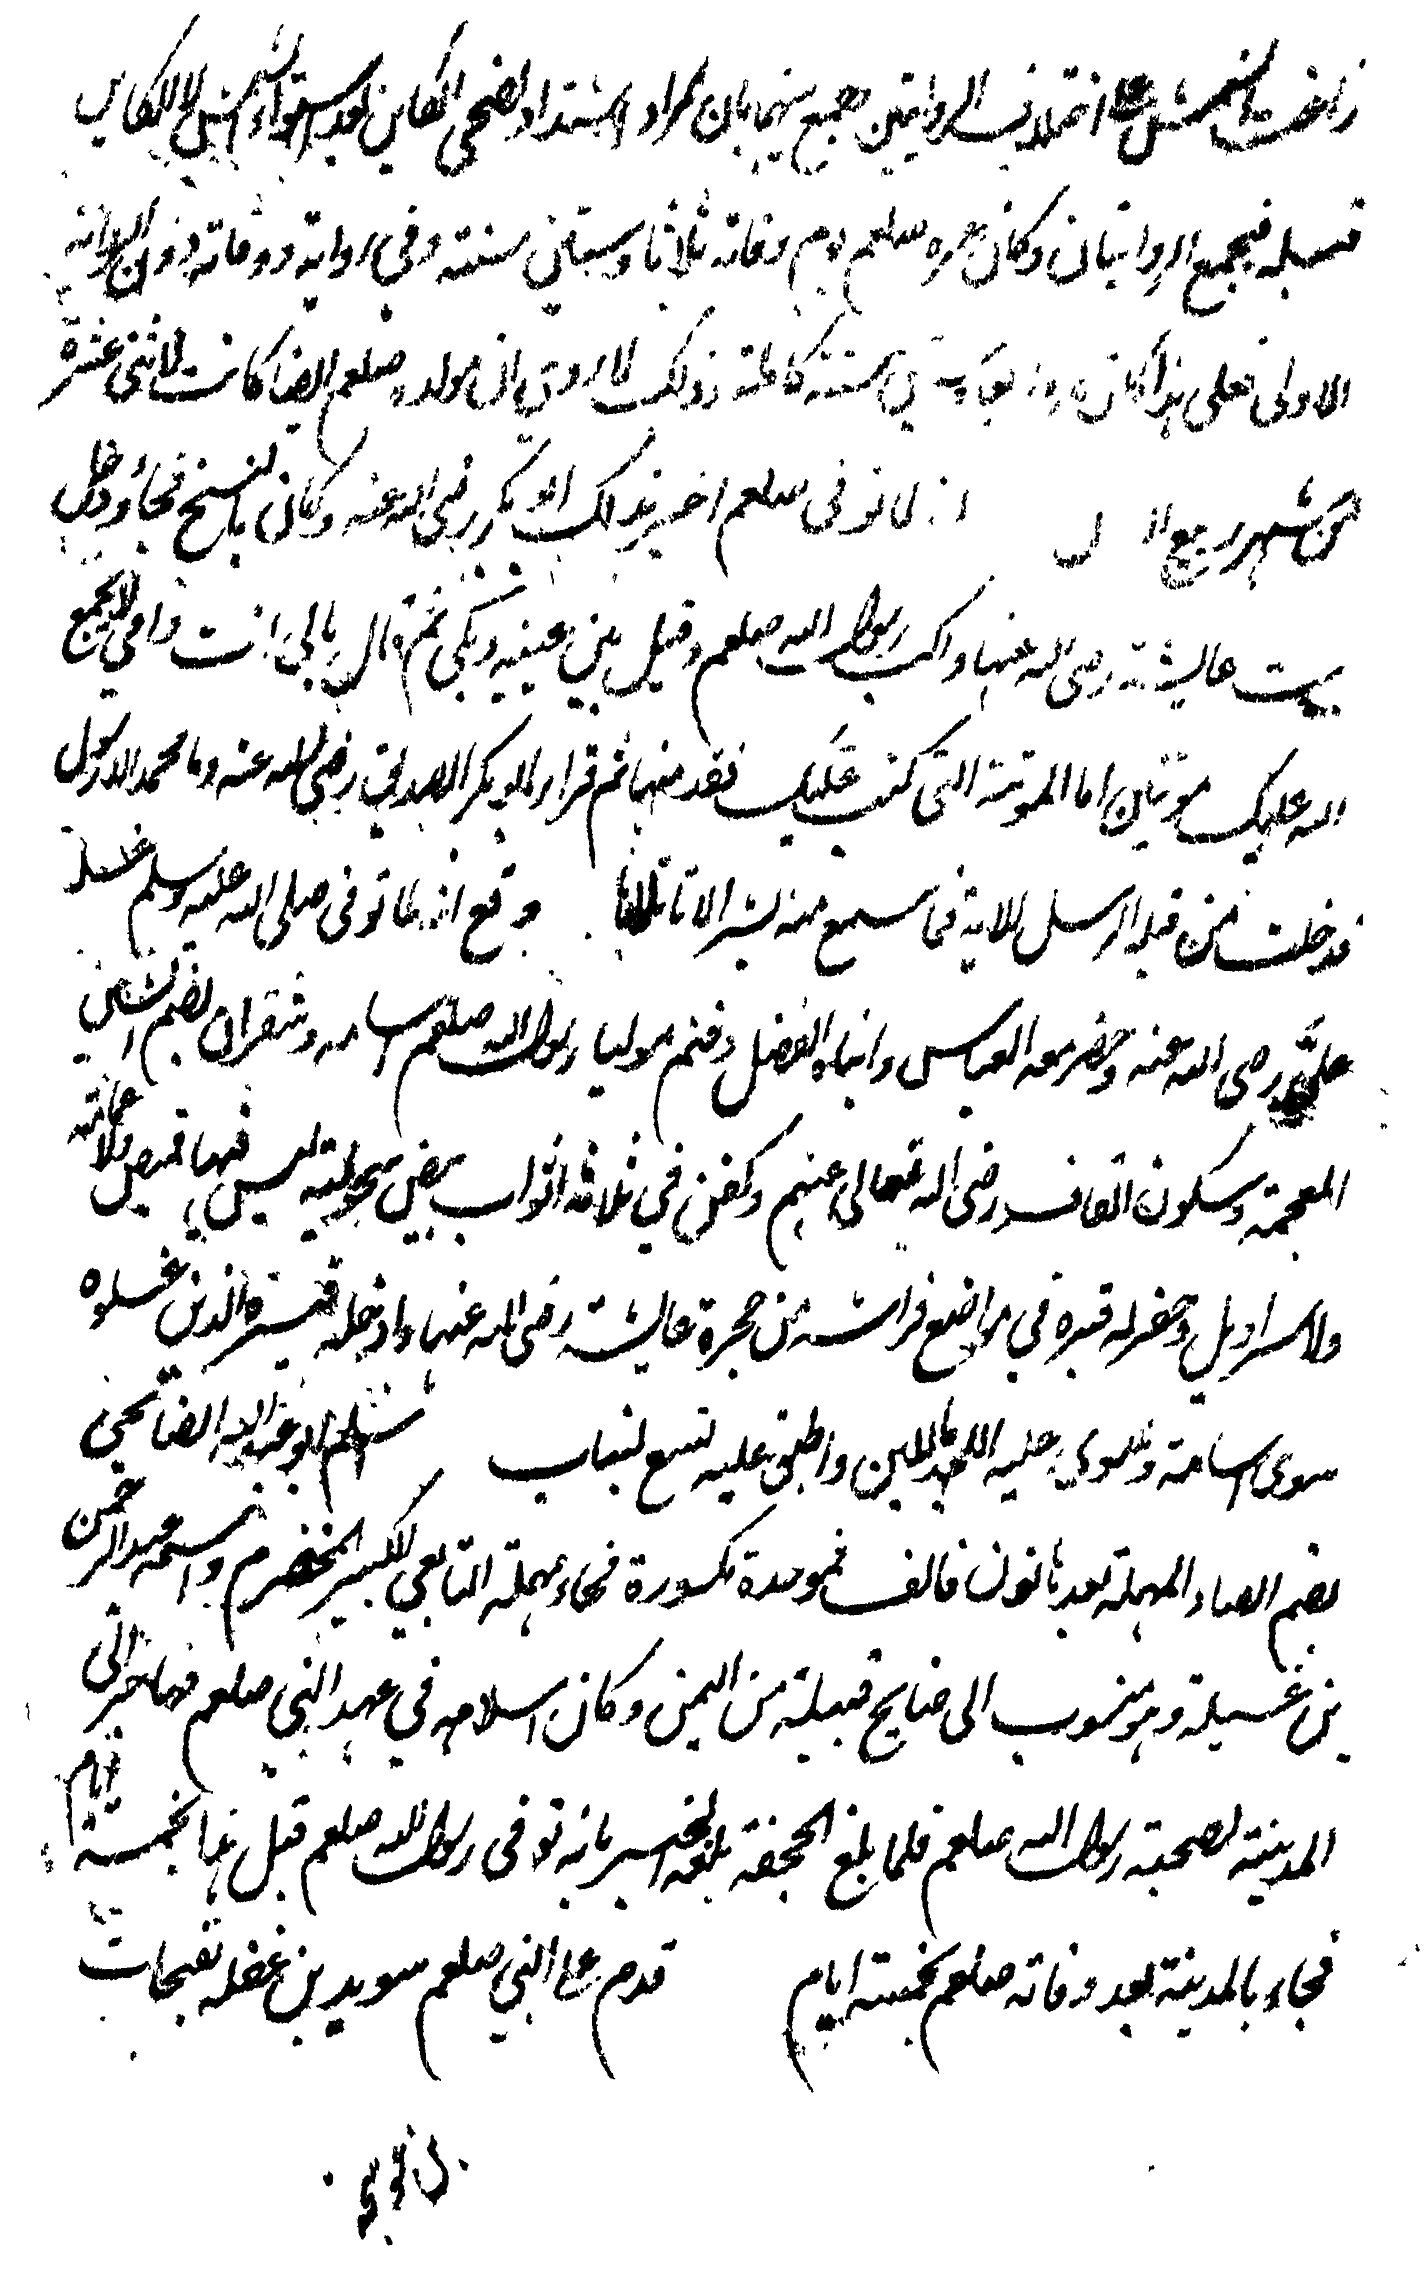 زاغت الشمس على اختلاف الروايتين وجمع بينهما بان المراد اشتداد الضحى الكاين بعد استواء الشمس لا الكاين
قبله فيجمع الروايتان وكان عمره صلعم يوم وفاته ثلاثا وستين سنة وفي رواية ووفاته دون الرواية
الاولى فعلى هذا كان سنة كاملة وذلك لما روي ان مولده صلعم ايضا كانت لاثنى عشرة
من شهر ربيع الا ل انه لما توفى صلعم اخبر بذلك ابو بكر رضى الله عنه وكان بالسنح فجاء ودخل
بيت عايشة رضى الله عنها واكب رسول الله صلعم وقبل بين عينيه وبكى ثم قال بابي انت وامي لا يجمع
الله عليك موتتين اما الموتة التى كتب عليك فقد متها ثم قرا ابو بكر الصديق رضى الله عنه وما محمد الا رسول
قد خلت من قبله الرسل الاية فما سمع منه بشر الا تاتلاها وقع انه لما توفى صلى الله عليه وسلم غسله
على رضى الله عنه وحضر معه العباس وابناه الفضل وقثم موليا رسول الله صلعم اسامه وشقران بضم الشين
المعجمة وسكون القاف رضى الله تعالى عنهم وكفن في ثلاثة اثواب بيض سحولية ليس فيها قميص ولا عمامه
ولا سراويل وحفر له قبره في مواضع فراشه من حجرة عايشة رضى الله عنها وادخله قبره الذين غسلوه
سوى اسامة وسوى عليه اللحد الطين واطبق عليه تسع لبنات منهم ابو عبد الله الصنابحي
بضم الصاد المهملة بعدها نون فالف فموحدة مكسورة فحاء مهملة التابعي الكبير المخضرم واسمه عبد الرحمن
بن عسيلة وهو منسوب الى صنابح قبيلة من اليمن وكان اسلامه في عهد النبي صلعم فهاجر الى
المدينة لصحبة رسول الله صلعم فلما بلغ الجحفة بلغه الخبر بانه توفى رسول الله صلعم قبل بخمسة ايام
فجاء بالمدينة بعد وفاته صلعم بخمسة ايام قدم على النبي صلعم سويد بن غفلة